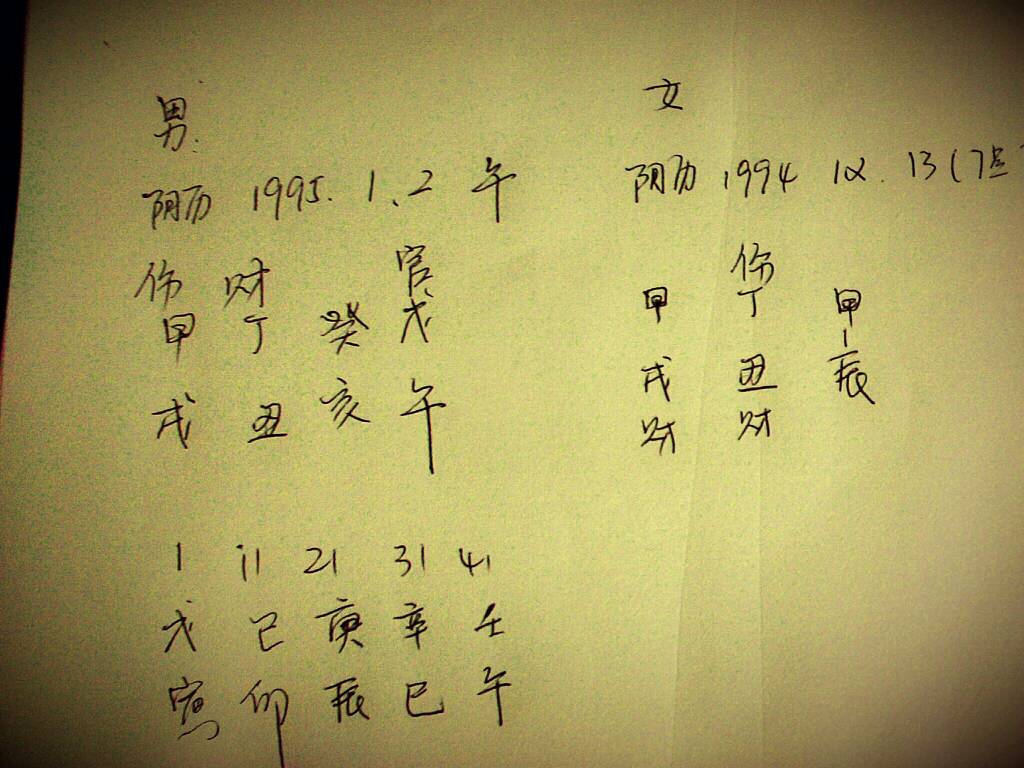 男
阴历 1995. 1.2 午
伤 财 官
甲 丁 癸 戊
戌 丑 亥 午
1 11 21 31 41
戊 己 庚 辛 壬
寅 卯 辰 巳 午
女
阴历 1994 12. 13 (7点
伤
甲 丁 甲
戌 丑 辰
财 财